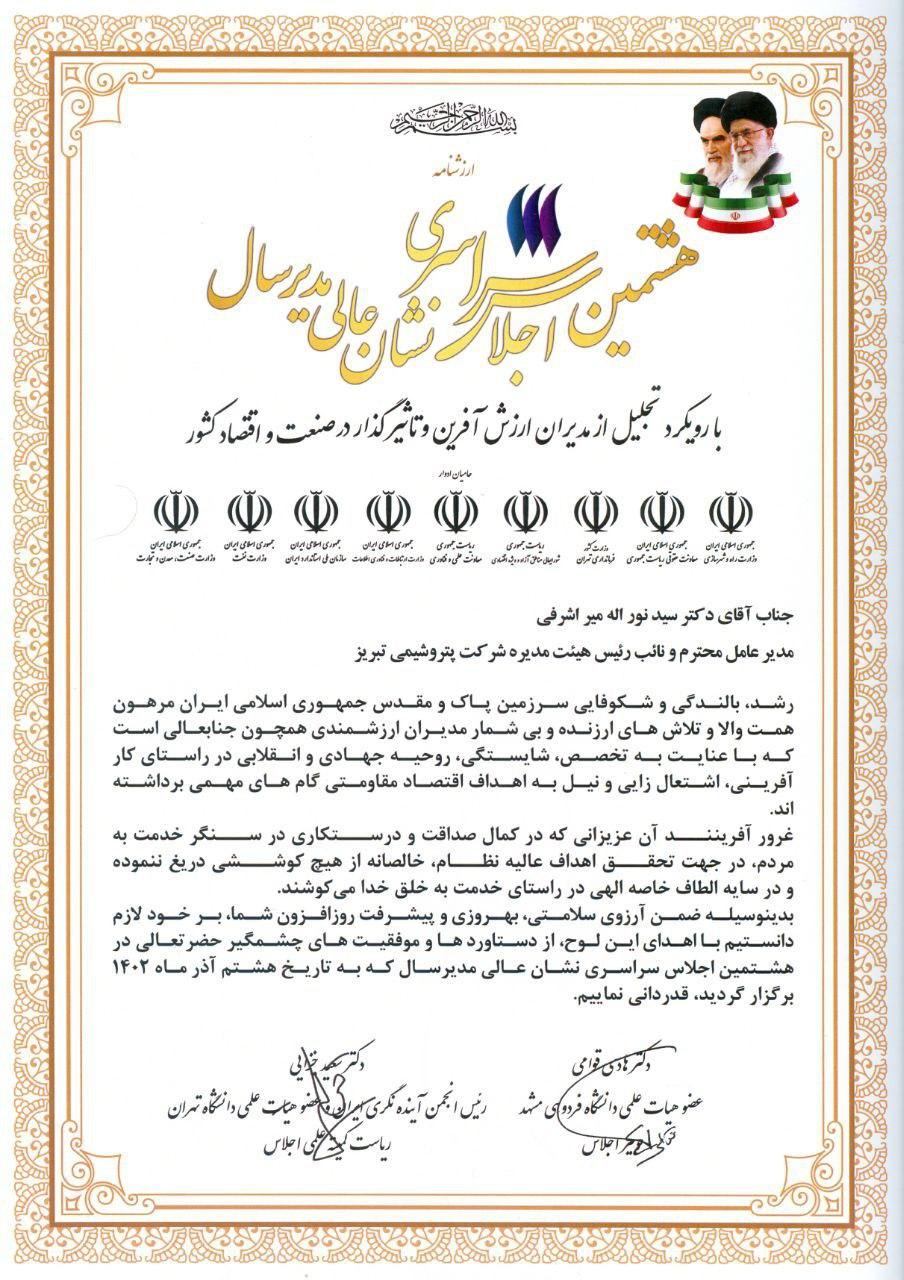 بسم الله الرحمن الرحیم
ارزشنامه
هشتمین اجلاس سراسری نشان عالی مدیر سال
با رویکرد تجلیل از مدیران ارزش آفرین و تاثیرگذار در صنعت و اقتصاد کشور
حامیان ادوار
جمهوری اسلامی ایران
وزارت راه و شهرسازی
جمهوری اسلامی ایران
معاونت حقوقی ریاست جمهوری
وزارت کشور
فرمانداری تهران
ریاست جمهوری
شورایعالی مناطق آزاد و ویژه اقتصادی
ریاست جمهوری
معاونت علمی و فناوری
جمهوری اسلامی ایران
وزارت ارتباطات و فناوری اطلاعات
جمهوری اسلامی ایران
سازمان ملی استاندارد ایران
جمهوری اسلامی ایران
وزارت نفت
جمهوری اسلامی ایران
وزارت صنعت، معدن و تجارت
جناب آقای دکتر سید نور اله میر اشرفی
مدیر عامل محترم و نائب رئیس هیئت مدیره شرکت پتروشیمی تبریز
رشد، بالندگی و شکوفایی سرزمین پاک و مقدس جمهوری اسلامی ایران مرهون
همت والا و تلاش های ارزنده و بی شمار مدیران ارزشمندی همچون جنابعالی است
که با عنایت به تخصص، شایستگی، روحیه جهادی و انقلابی در راستای کار
آفرینی، اشتعال زایی و نیل به اهداف اقتصاد مقاومتی گام های مهمی برداشته
اند.
غرور آفریننـد آن عزیزانی که در کمال صداقت و درستکاری در سنگر خدمت به
مردم، در جهت تحقق اهداف عالیه نظام، خالصانه از هیچ کوششی دریغ ننموده
و در سایه الطاف خاصه الهی در راستای خدمت به خلق خدا می‌کوشند.
بدینوسیله ضمن آرزوی سلامتی، بهروزی و پیشرفت روزافزون شما، بر خود لازم
دانستیم با اهدای این لوح، از دستاورد ها و موفقیت های چشمگیر حضرتعالی در
هشتمین اجلاس سراسری نشان عالی مدیرسال که به تاریخ هشتم آذر ماه ۱۴۰۲
برگزار گردید، قدردانی نماییم.
دکتر هادی قوامی
عضو هیات علمی دانشگاه فردوسی مشهد
اجلاس
دکتر سعید خزایی
رئیس انجمن آینده نگری ایران و عضو هیات علمی دانشگاه تهران
ریاست کمیته علمی اجلاس